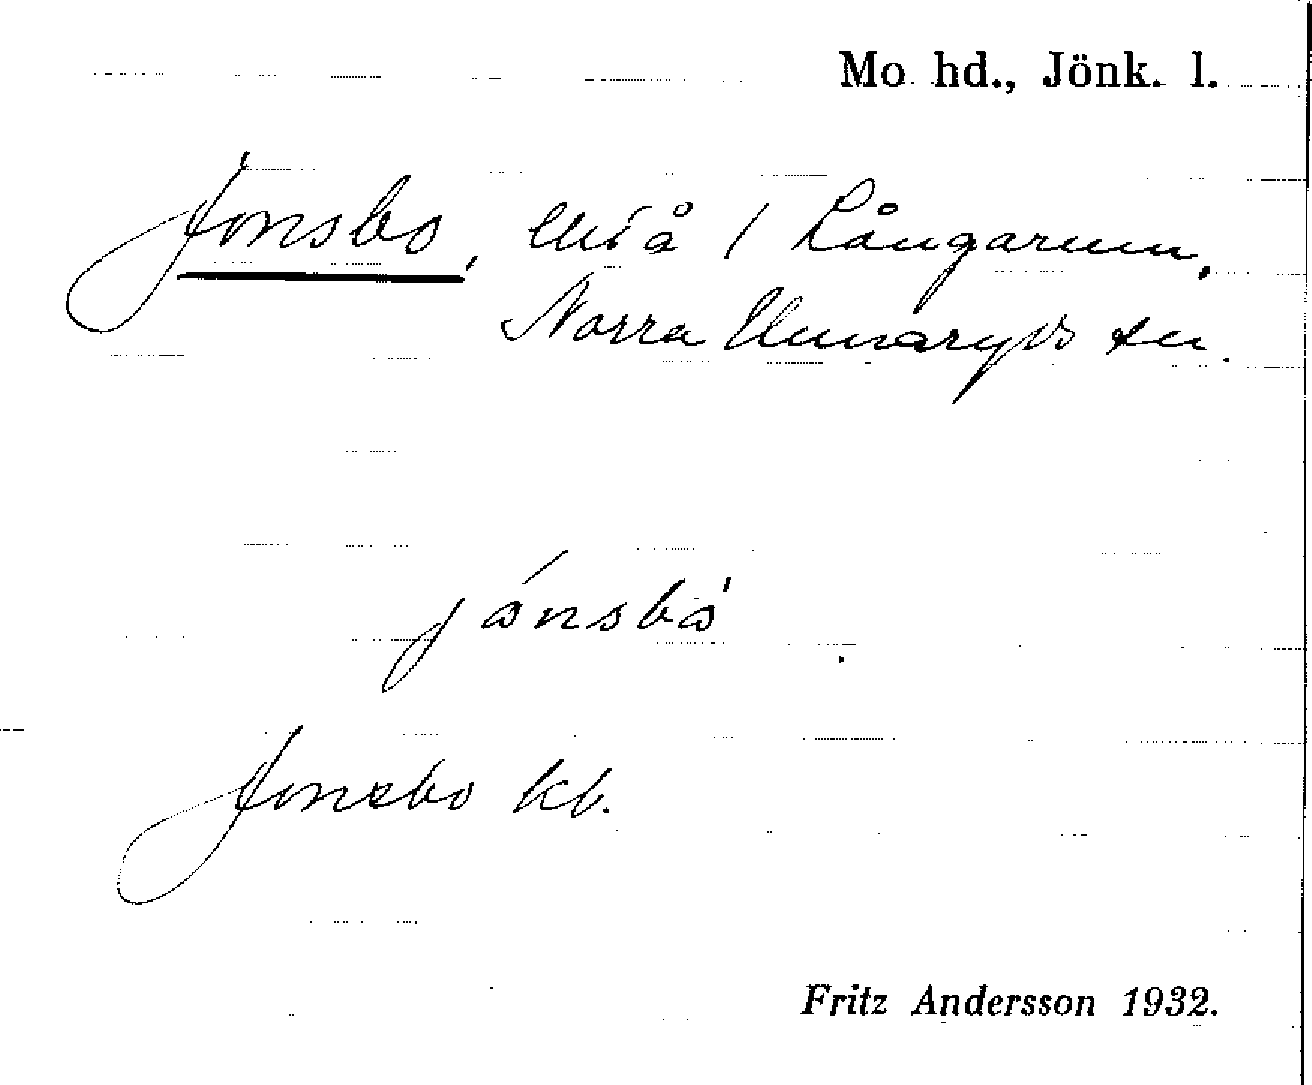 Mo hd., Jönk. l.
Jonsbo, lht å 1 Långarum,
Norra Unnaryds sn.
jånsbå
Jonsbo kb.
Fritz Andersson 1932.